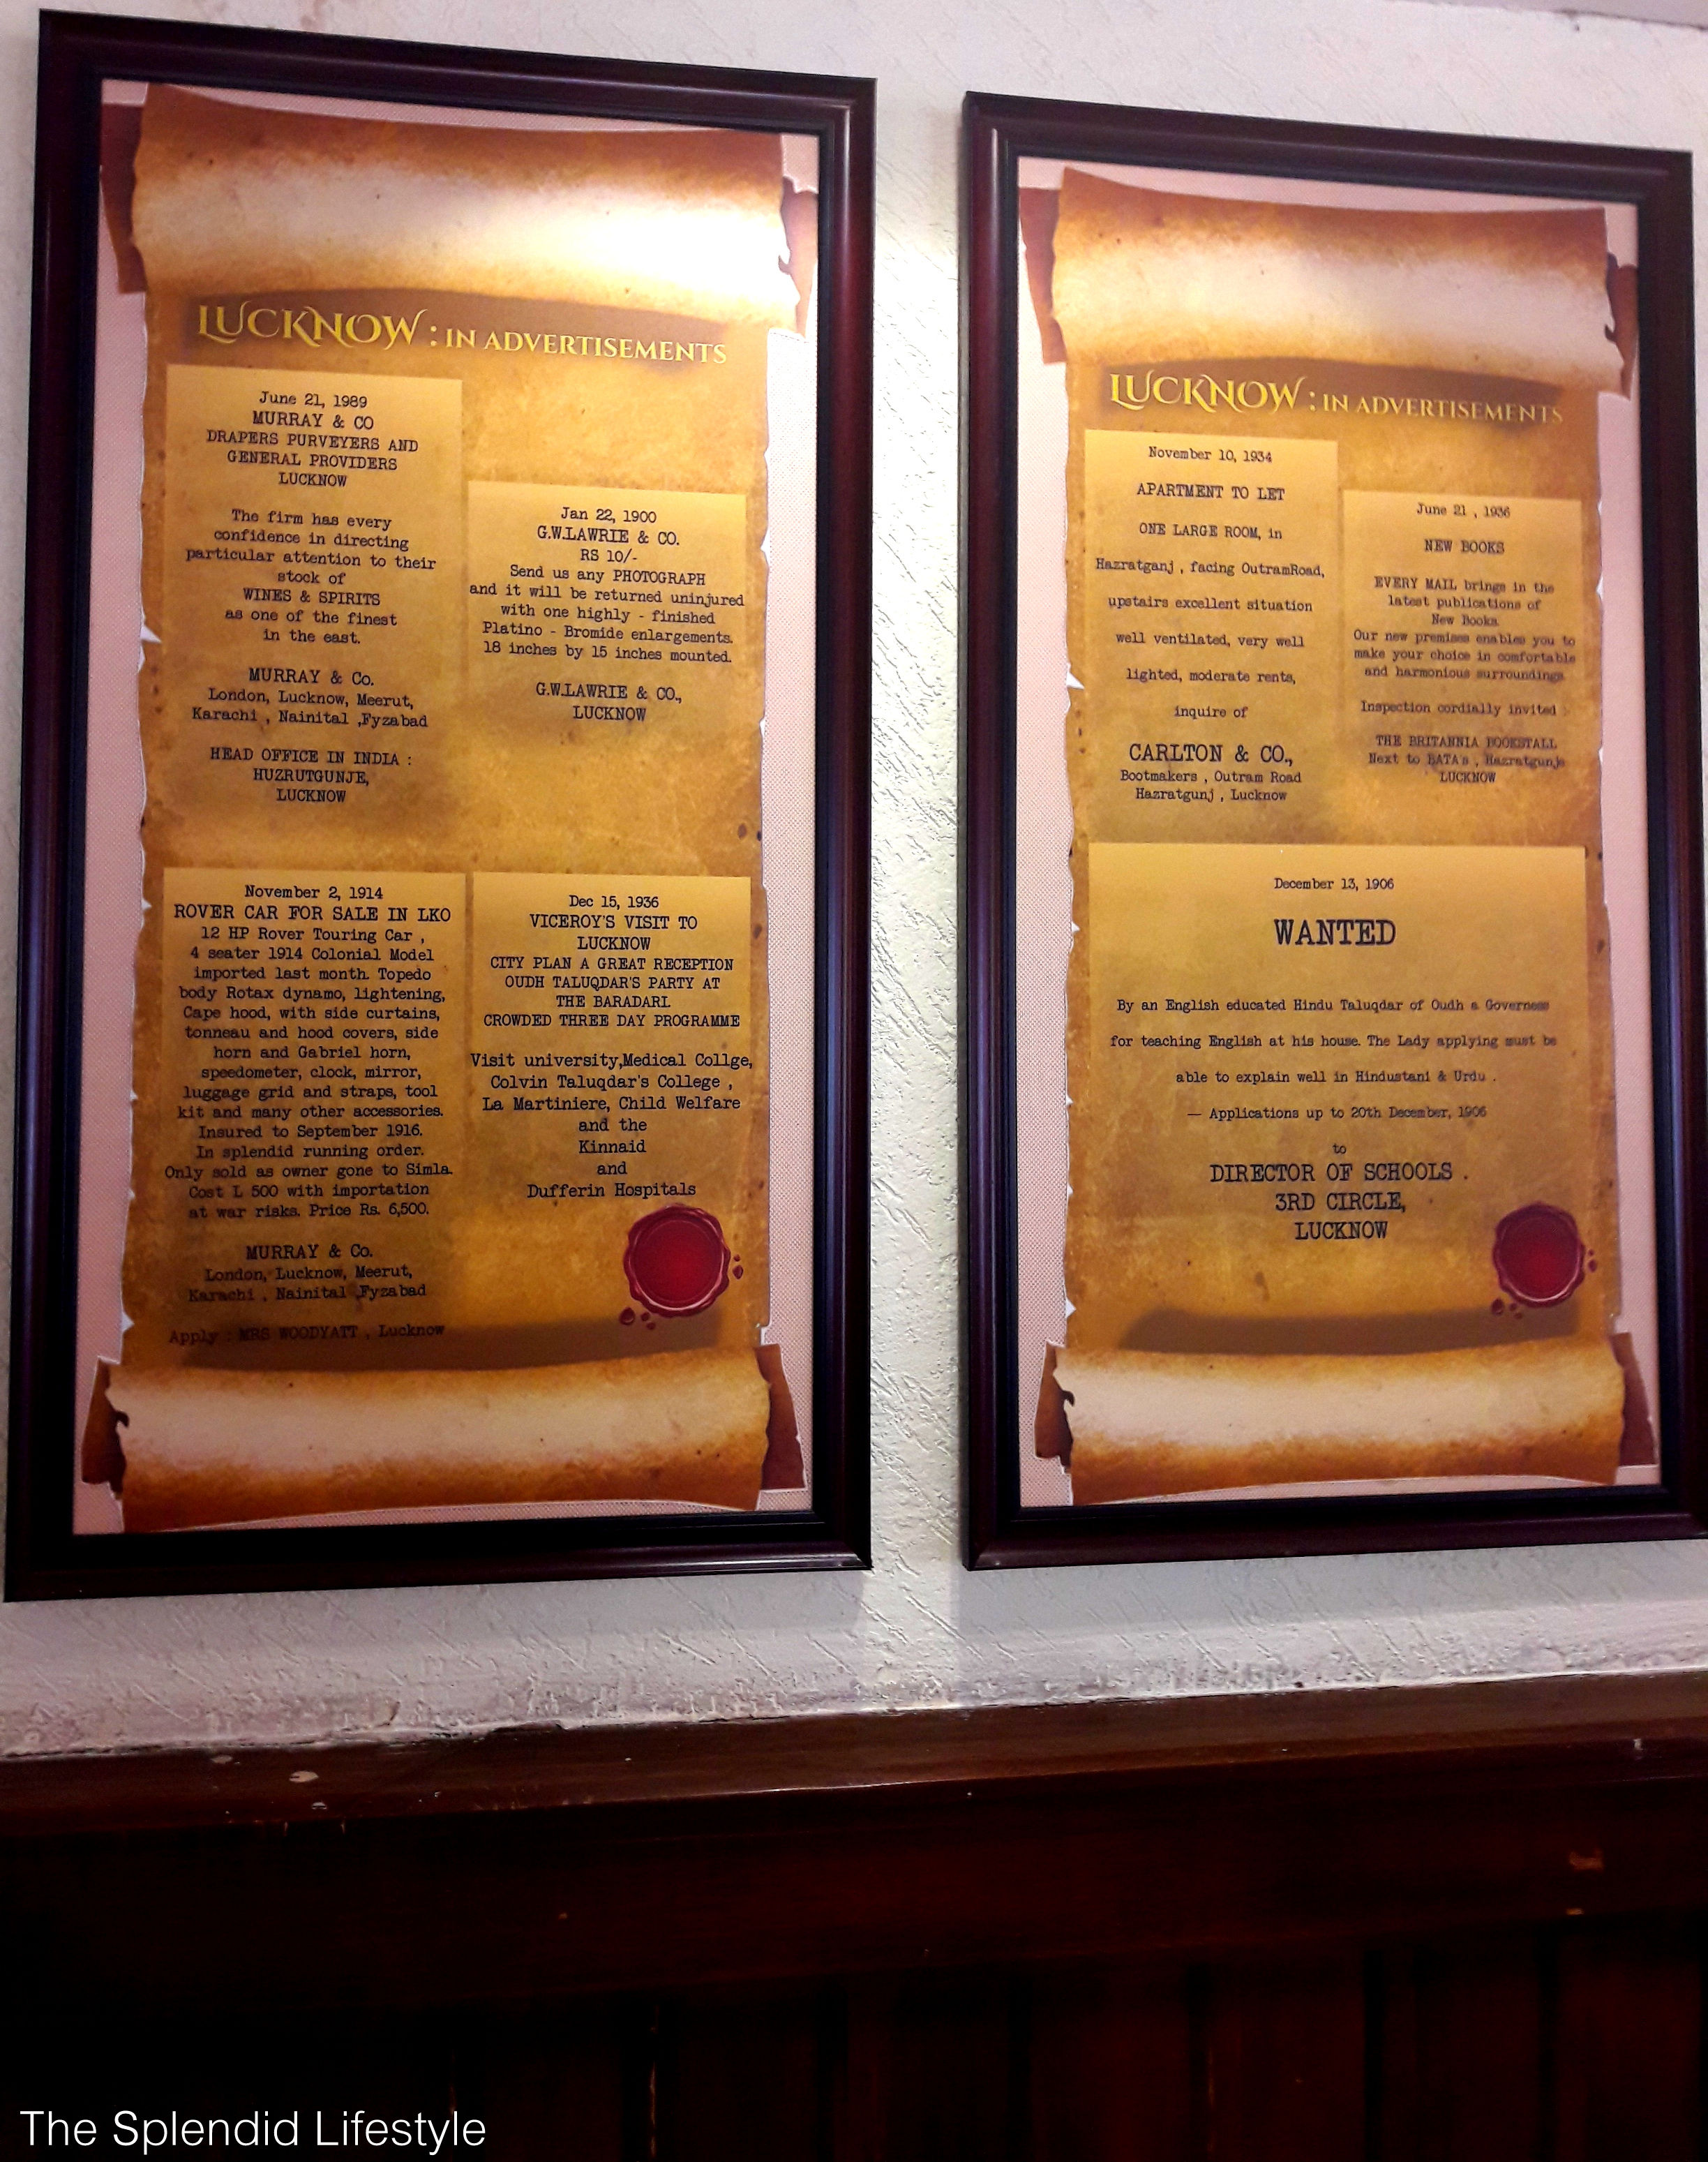 LUCKNOW : IN ADVERTISEMENTS
June 21, 1989
MURRAY & CO
DRAPERS PURVEYERS AND
GENERAL PROVIDERS
LUCKNOW
The firm has every
confidence in directing
particular attention to their
stock of
WINES & SPIRITS
as one of the finest
in the east.
MURRAY & Co.
London, Lucknow, Meerut,
Karachi , Nainital ,Fyzabad
HEAD OFFICE IN INDIA :
HUZRUTGUNJE,
LUCKNOW
Jan 22, 1900
G.W.LAWRIE & CO.
RS 10/-
Send us any PHOTOGRAPH
and it will be returned uninjured
with one highly - finished
Platino - Bromide enlargements.
18 inches by 15 inches mounted.
G.W.LAWRIE & CO.,
LUCKNOW
November 2, 1914
ROVER CAR FOR SALE IN LKO
12 HP Rover Touring Car ,
4 seater 1914 Colonial Model
imported last month. Topedo
body Rotax dynamo, lightening,
Cape hood, with side curtains,
tonneau and hood covers, side
horn and Gabriel horn,
speedometer, clock, mirror,
luggage grid and straps, tool
kit and many other accessories.
Insured to September 1916.
In splendid running order.
Only sold as owner gone to Simla.
Cost L 500 with importation
at war risks. Price Rs. 6,500.
MURRAY & Co.
London, Lucknow, Meerut,
Karachi , Nainital ,Fyzabad
Apply : MRS WOODYATT , Lucknow
Dec 15, 1936
VICEROY'S VISIT TO
LUCKNOW
CITY PLAN A GREAT RECEPTION
OUDH TALUQDAR'S PARTY AT
THE BARADARI.
CROWDED THREE DAY PROGRAMME
Visit university,Medical Collge,
Colvin Taluqdar's College ,
La Martiniere, Child Welfare
and the
Kinnaid
and
Dufferin Hospitals
LUCKNOW : IN ADVERTISEMENTS
November 10, 1934
APARTMENT TO LET
ONE LARGE ROOM, in
Hazratganj , facing OutramRoad,
upstairs excellent situation
well ventilated, very well
lighted, moderate rents,
inquire of
CARLTON & CO.,
Bootmakers , Outram Road
Hazratgunj , Lucknow
June 21 , 1936
NEW BOOKS
EVERY MAIL brings in the
latest publications of
New Books
Our new premises enables you to
make your choice in comfortable
and harmonious surroundings
Inspection cordially invited :
THE BRITANNIA BOOKSTALL
Next to BATA's , Hazratgunje
LUCKNOW
December 13, 1906
WANTED
By an English educated Hindu Taluqdar of Oudh a Governess
for teaching English at his house. The Lady applying must be
able to explain well in Hindustani & Urdu .
— Applications up to 20th December, 1906
to
DIRECTOR OF SCHOOLS .
3RD CIRCLE,
LUCKNOW
The Splendid Lifestyle